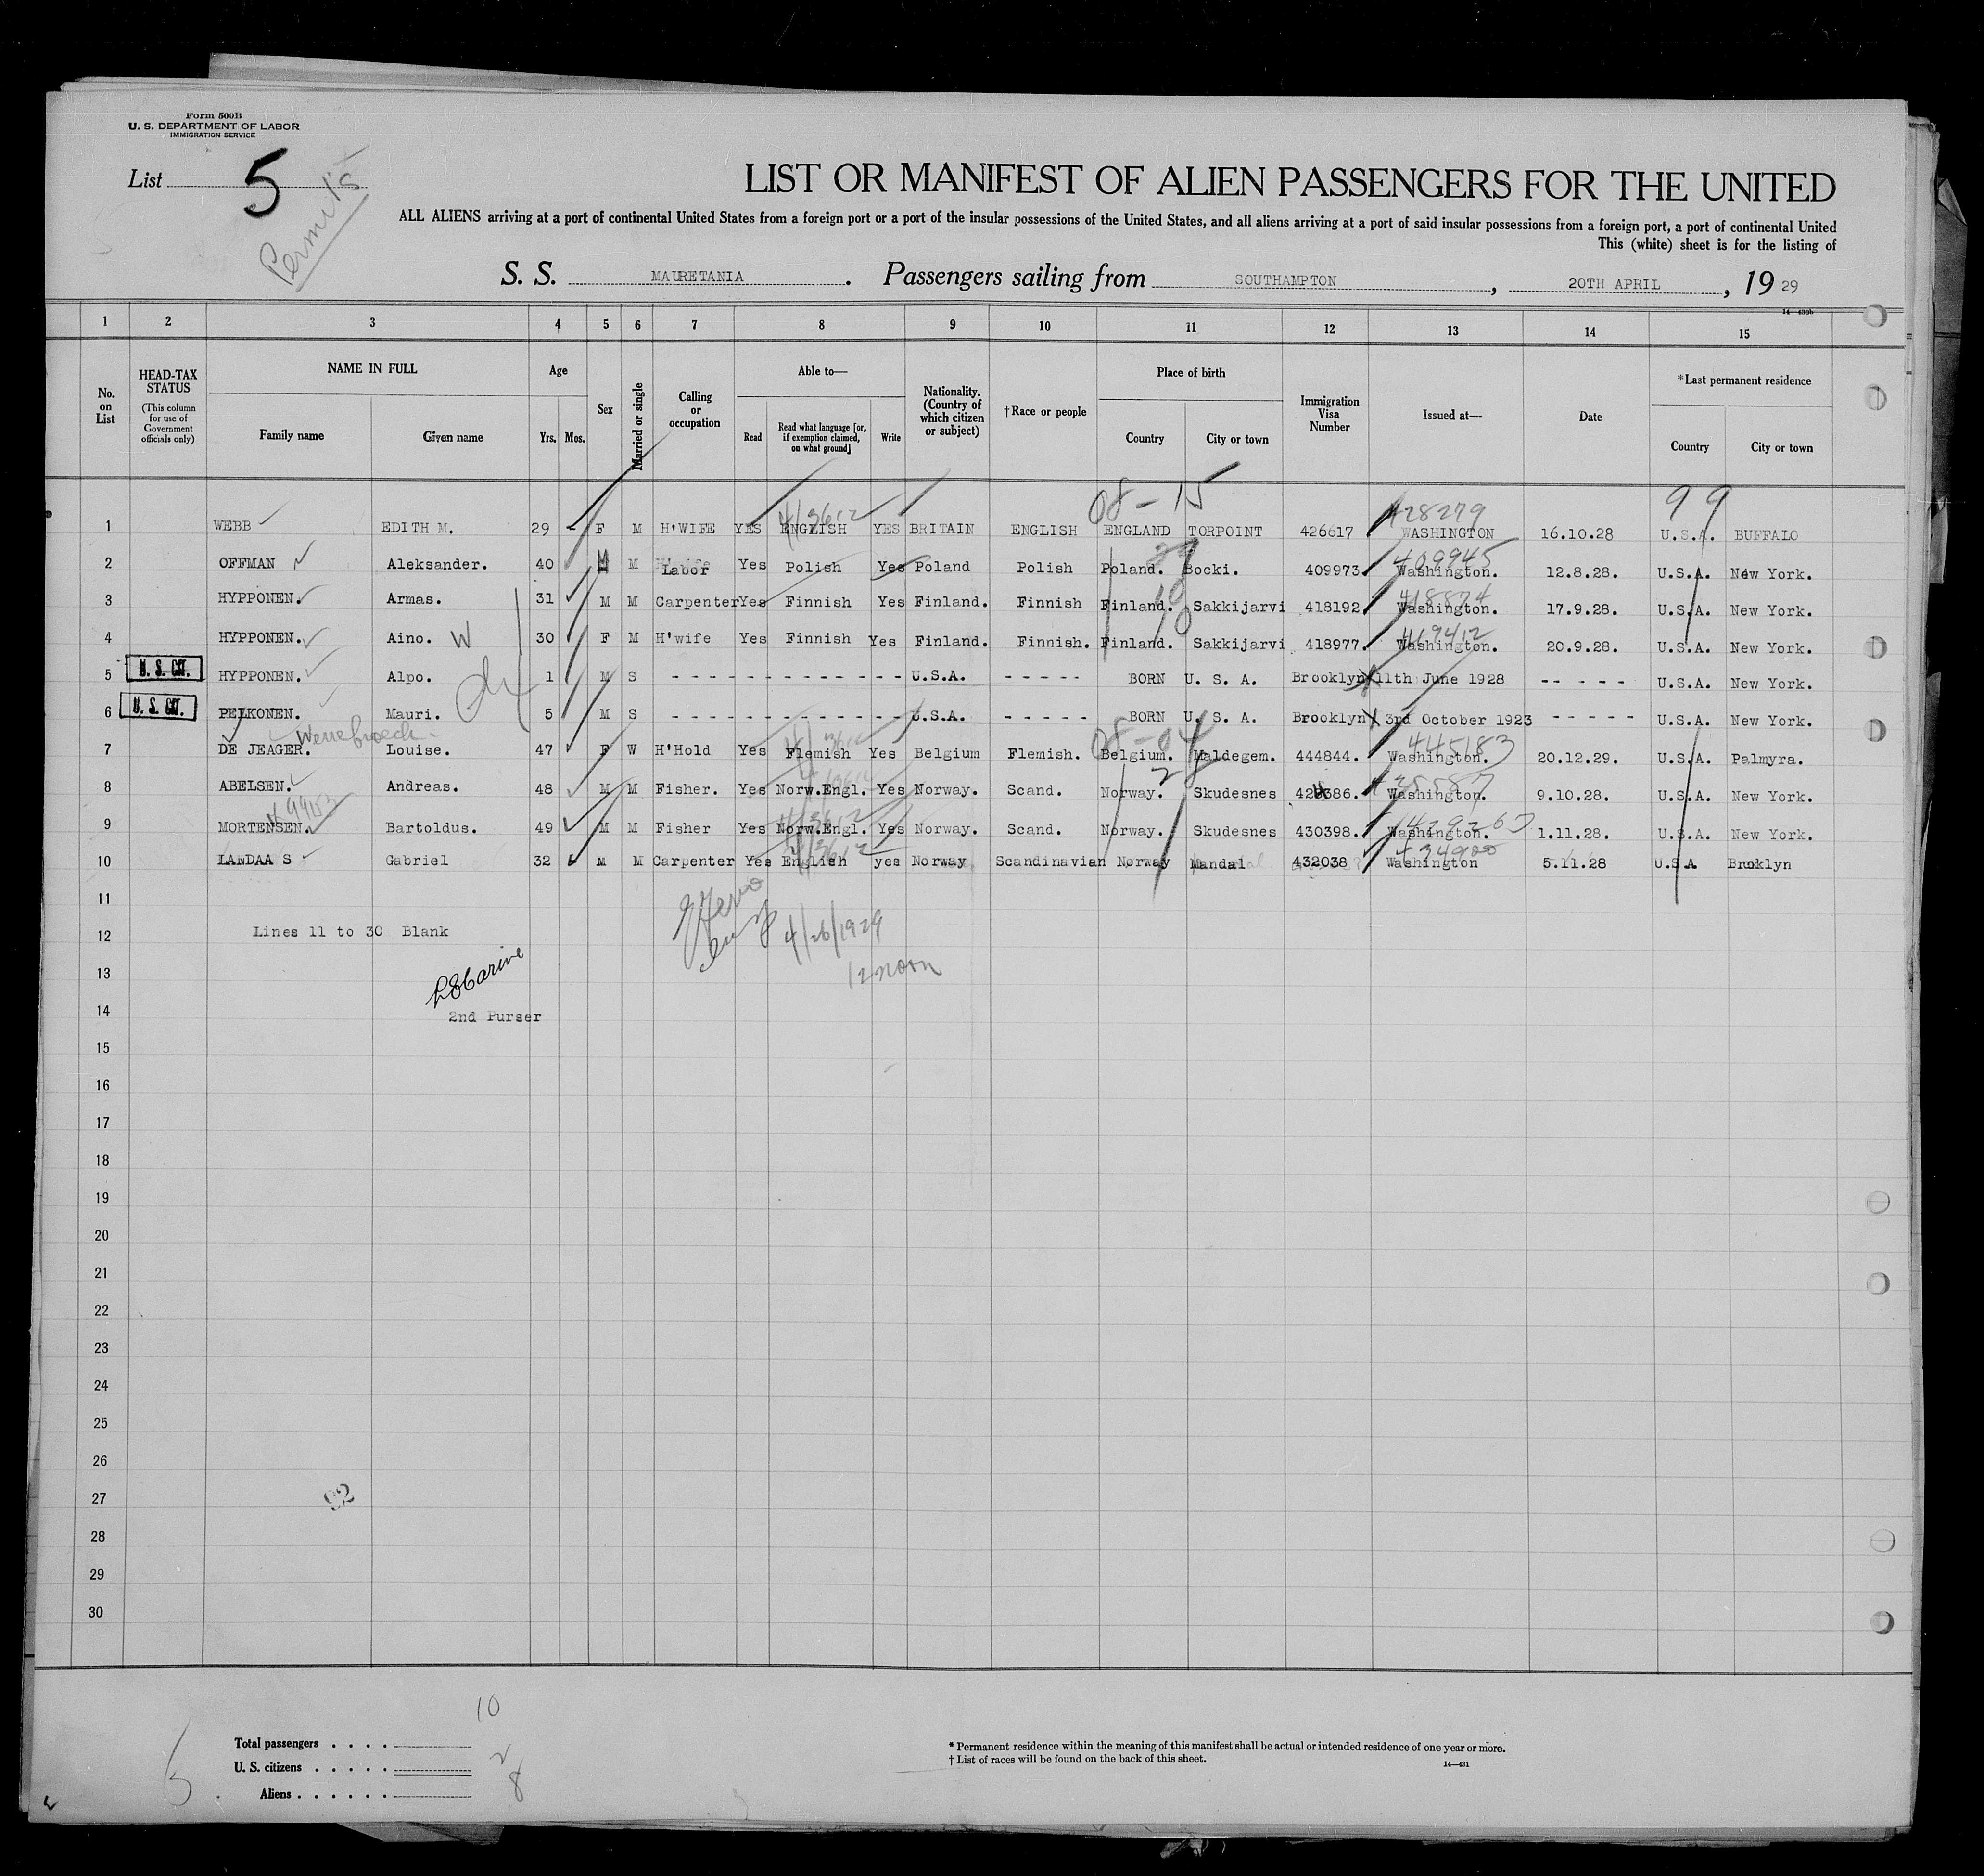 Form 500B
U. S. DEPARTMENT OF LABOR
IMMIGRATION SERVICE
List 5
Permits
LIST OR MANIFEST OF ALIEN PASSENGERS FOR THE UNITED
ALL ALIENS arriving at a port of continental United States from a foreign port or a port of the insular possessions of the United States, and all aliens arriving at a port of said insular possessions from a foreign port, a port of continental United
This (white) sheet is for the listing of
S. S. MAURETANIA. Passengers sailing from SOUTHAMPTON, 20TH APRIL, 19 29
14—430b
1 2 3 4 5 6 7 8 9 10 11 12 13 14 15
No. on List
HEAD-TAX STATUS (This column for use of Government officials only)
NAME IN FULL
Family name
Given name
Age
Yrs. Mos.
Sex
Married or single
Calling or occupation
Able to—
Read
Read what language [or, if exemption claimed, on what ground]
Write
Nationality. (Country of which citizen or subject)
†Race or people
Place of birth
Country
City or town
Immigration Visa Number
Issued at—
Date
*Last permanent residence
Country
City or town
08-15 99
4/3612 428279
1 WEBB EDITH M. 29 F M H'WIFE YES ENGLISH YES BRITAIN ENGLISH ENGLAND TORPOINT 426617 WASHINGTON 16.10.28 U.S.A. BUFFALO
409945
2 OFFMAN Aleksander. 40 M M Labor Yes Polish Yes Poland Polish Poland. Bocki. 409973. Washington. 12.8.28. U.S.A. New York.
10 418874
3 HYPPONEN. Armas. 31 M M Carpenter Yes Finnish Yes Finland. Finnish Finland. Sakkijarvi 418192. Washington. 17.9.28. U.S.A. New York.
10 419412
4 HYPPONEN. Aino. W 30 F M H'wife Yes Finnish Yes Finland. Finnish. Finland. Sakkijarvi 418977. Washington. 20.9.28. U.S.A. New York.
5 U. S. CIT. HYPPONEN. Alpo. 1 M S - - - - - - - - - - - - - - U.S.A. - - - - - BORN U. S. A. Brooklyn 11th June 1928 - - - - - U.S.A. New York.
6 U. S. CIT. PELKONEN. Mauri. 5 M S - - - - - - - - - - - - - - U.S.A. - - - - - BORN U. S. A. Brooklyn 3rd October 1923 - - - - - U.S.A. New York.
08-04 445183
7 DE JEAGER. Louise. 47 F W H'Hold Yes Flemish Yes Belgium Flemish. Belgium. Maldegem. 444844. Washington. 20.12.29. U.S.A. Palmyra.
8 ABELSEN. Andreas. 48 M M Fisher. Yes Norw.Engl. Yes Norway. Scand. Norway. Skudesnes Washington. 9.10.28. U.S.A. New York.
4/3612
9 MORTENSEN. Bartoldus. 49 M M Fisher Yes Norw.Engl. Yes Norway. Scand. Norway. Skudesnes 430398. Washington. 1.11.28. U.S.A. New York.
4/3612
10 LANDAA S Gabriel 32 M M Carpenter Yes English yes Norway Scandinavian Norway Mandal 432038 Washington 5.11.28 U.S.A Brooklyn
11
12 Lines 11 to 30 Blank 4/26/1929
13 12 noon
14 2nd Purser
15
16
17
18
19
20
21
22
23
24
25
26
27 92
28
29
30
Total passengers . . . . 10
U. S. citizens . . . . . 2
Aliens . . . . . . 8
* Permanent residence within the meaning of this manifest shall be actual or intended residence of one year or more.
† List of races will be found on the back of this sheet.
14—431